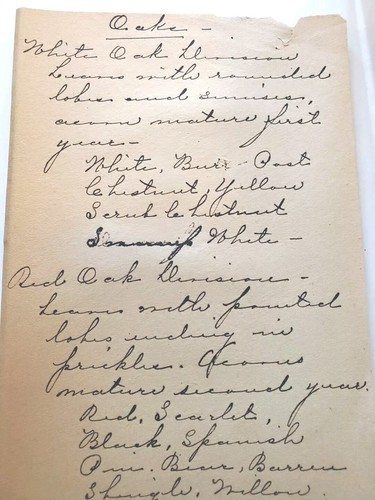 Oaks -
White Oak Division
Leaves with rounded
lobes and sinuses,
acorn mature first
year -
White, Burr - Post
Chestnut, Yellow
Scrub Chestnut
White -
Red Oak Division -
Leaves with pointed
lobes ending in
prickles. Acorns
mature second year.
Red, Scarlet,
Black, Spanish
Pin. Bear, Barren
Shingle, Willow.